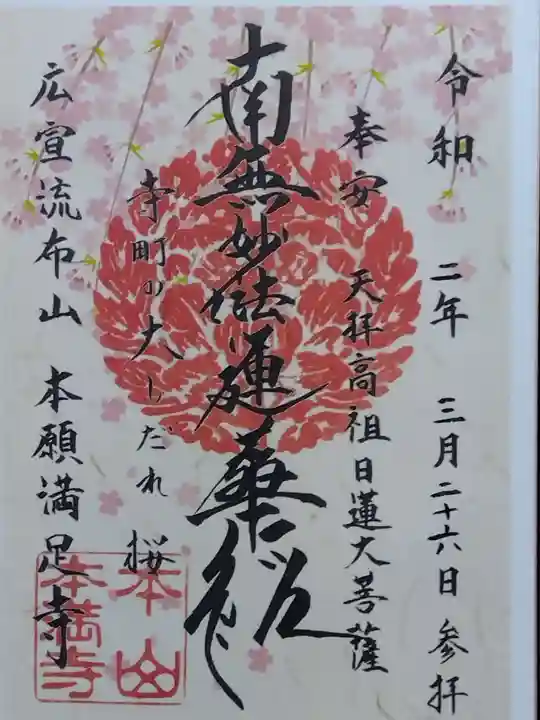 令和 二年 三月二十六日 参拝
奉安 天拝高祖日蓮大菩薩
南無妙法蓮華経
寺町の大しだれ桜
広宣流布山 本願満足寺
本山
本満寺